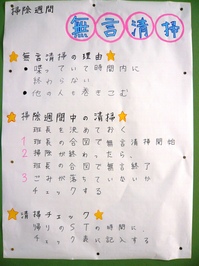 掃除週間
無言清掃
無言清掃の理由
・喋っていて時間内に
終わらない
・他の人を巻きこむ
掃除週間中の清掃
班長を決めておく
1 班長の合図で無言清掃開始
2 掃除が終わったら、
班長の合図で無言終了
3 ごみが落ちていないか
チェックする
清掃チェック
帰りのSTの時間に、
チェック表に記入する